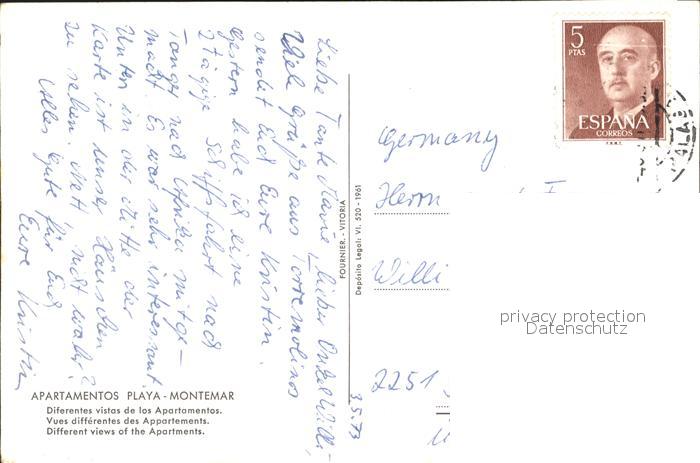 Liebe Tante Marie, lieber Onkel Willi,
Viele Grüße aus Torremolinos
sendet Euch Eure Kristin.
Gestern habe ich eine
2tägige Schiffsfahrt nach
Tanger nach Afrika mitge-
macht. Es war sehr interessant.
Unten in der Mitte der
Karte ist unser Häuschen
zu sehen. Nett, nicht wahr?
Alles Gute für Euch
Eure Kristin
3.5.73
APARTAMENTOS PLAYA - MONTEMAR
Diferentes vistas de los Apartamentos.
Vues différentes des Appartements.
Different views of the Apartments.
FOURNIER. - VITORIA
Depósito Legal: VI. 520 - 1961
5
PTAS
ESPAÑA
CORREOS
F.N.M.T.
Germany
Herrn
Willi
2251
privacy protection
Datenschutz